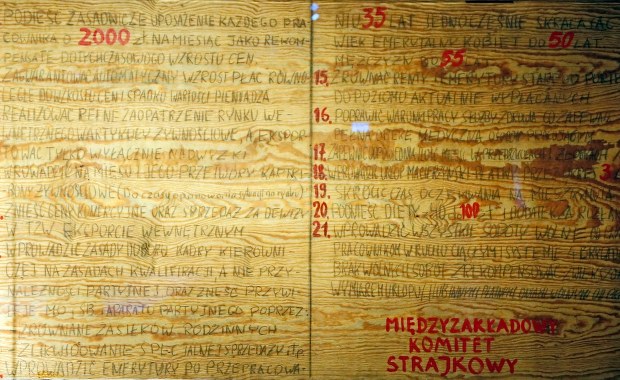 PODIEŚĆ ZASADNICZE UPOSAŻENIE KAŻDEGO PRA-
COWNIKA O 2000 ZŁ NA MIESIĄC JAKO REKOM-
PENSATĘ DOTYCHCZASOWEGO WZROSTU CEN.
ZAGWARANTOWAĆ AUTOMATYCZNY WZROST PŁAC RÓWNO-
LEGLE DO WZROSTU CEN I SPADKU WARTOŚCI PIENIĄDZA
REALIZOWAĆ PEŁNE ZAOPATRZENIE RYNKU WE-
WNĘTRZNEGO W ARTYKUŁY ŻYWNOŚCIOWE, A EKSPOR-
TOWAĆ TYLKO WYŁĄCZNIE NADWYŻKI
WPROWADZIĆ NA MIĘSO I JEGO PRZETWORY KARTKI
BONY ŻYWNOŚCIOWE (do czasu opanowania sytuacji na rynku)
ZNIEŚĆ CENY KOMERCYJNE ORAZ SPRZEDAŻ ZA DEWIZY
W TZW. EKSPORCIE WEWNĘTRZNYM
WPROWADZIĆ ZASADY DOBORU KADRY KIEROWNI-
CZEJ NA ZASADACH KWALIFIKACJI A NIE PRZY-
NALEŻNOŚCI PARTYJNEJ ORAZ ZNIEŚĆ PRZYWI-
LEJE MO, SB, APARATU PARTYJNEGO POPRZEZ:
ZRÓWNANIE ZASIŁKÓW RODZINNYCH
ZLIKWIDOWANIE SPECJALNEJ SPRZEDAŻY itp.
WPROWADZIĆ EMERYTURY PO PRZEPRACOWA-
NIU 35 LAT JEDNOCZEŚNIE SKRACAJĄC
WIEK EMERYTALNY KOBIET DO 50 LAT
MĘŻCZYZN DO 55 LAT
15. ZRÓWNAĆ RENTY I EMERYTURY STAREGO PORTFELA
DO POZIOMU AKTUALNIE WYPŁACANYCH
16. POPRAWIĆ WARUNKI PRACY SŁUŻBY ZDROWIA CO ZAPEWNI
PEŁNĄ OPIEKĘ MEDYCZNĄ
17. ZAPEWNIĆ ODPOWIEDNIĄ ILOŚĆ MIEJSC W
18. WPROWADZIĆ URLOP MACIERZYŃSKI PŁATNY 3
19. SKRÓCIĆ CZAS OCZEKIWANIA NA MIESZKANIE
20. PODNIEŚĆ DIETY 100 ZŁ I DODATEK ZA ROZŁĄKĘ
21. WPROWADZIĆ WSZYSTKIE SOBOTY WOLNE
PRACOWNIKOM W RUCHU CIĄGŁYM I SYSTEMIE
BRAK WOLNYCH SOBÓT ZREKOMPENSOWAĆ
WYMIAREM URLOPU LUB INNYMI PŁATNYMI
MIĘDZYZAKŁADOWY
KOMITET
STRAJKOWY